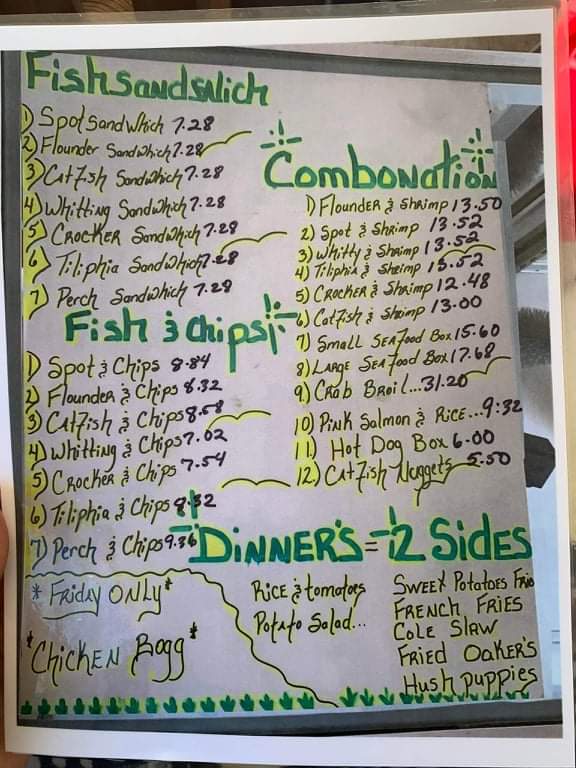 Fishsandswich
1) Spot Sandwhich 7.28
2) Flounder Sandwhich 7.28
3) Catfish Sandwhich 7.28
4) Whitting Sandwhich 7.28
5 Crocker Sandwhich 7.28
6 Tiliphia Sandwhich 7.28
7) Perch Sandwhich 7.28
Fish & Chips
1) Spot & Chips 8.84
2 Flounder & Chips 8.32
3) Catfish & Chips 8.58
4) Whitting & Chips 7.02
5) Crocker & Chips 7.54
6) Tiliphia & Chips 8.32
7) Perch & Chips 9.36
* Friday Only *
* Chicken Bogg *
Combonation
1) Flounder & Shrimp 13.50
2) Spot & Shrimp 13.52
3) Whitty & Shrimp 13.52
4) Tiliphia & Shrimp 13.52
5) Crocker & Shrimp 12.48
6) Catfish & Shrimp 13.00
7) Small Seafood Box 15.60
8) Large Seafood Box 17.68
9) Crab Broil...31.20
10) Pink Salmon & Rice...9:32
11.) Hot Dog Box 6.00
12.) Catfish Nuggets 5.50
Dinner's = 2 Sides
Rice & tomatoes
Potato Salad...
Sweet Potatoes Fries
French Fries
Cole Slaw
Fried Oaker's
Hush puppies